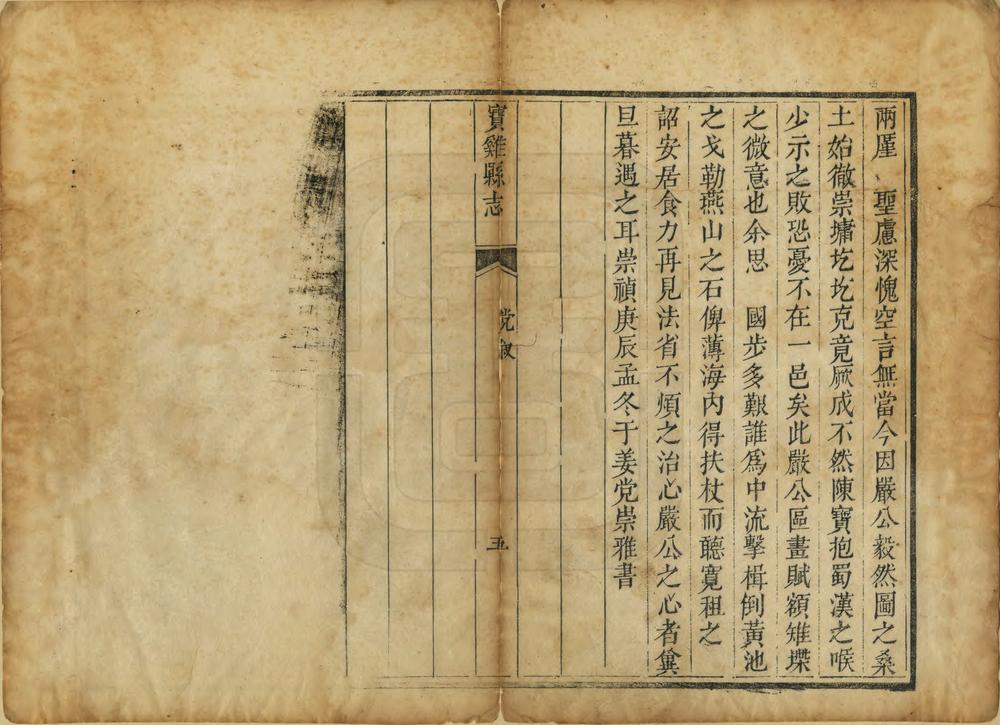 兩厪　聖慮深愧空言無當今因嚴公毅然圖之桑
土始徹崇墉圪圪克竟厥成不然陳寶抱蜀漢之喉
少示之敗恐憂不在一邑矣此嚴公區畫賦額雉堞
之微意也余思　國步多艱誰爲中流擊楫倒黃池
之戈勒燕山之石俾薄海內得扶杖而聽寬租之
詔安居食力再見法省不煩之治心嚴公之心者箕
旦暮遇之耳崇禎庚辰孟冬于姜党崇雅書
寶雞縣志
党叙
五